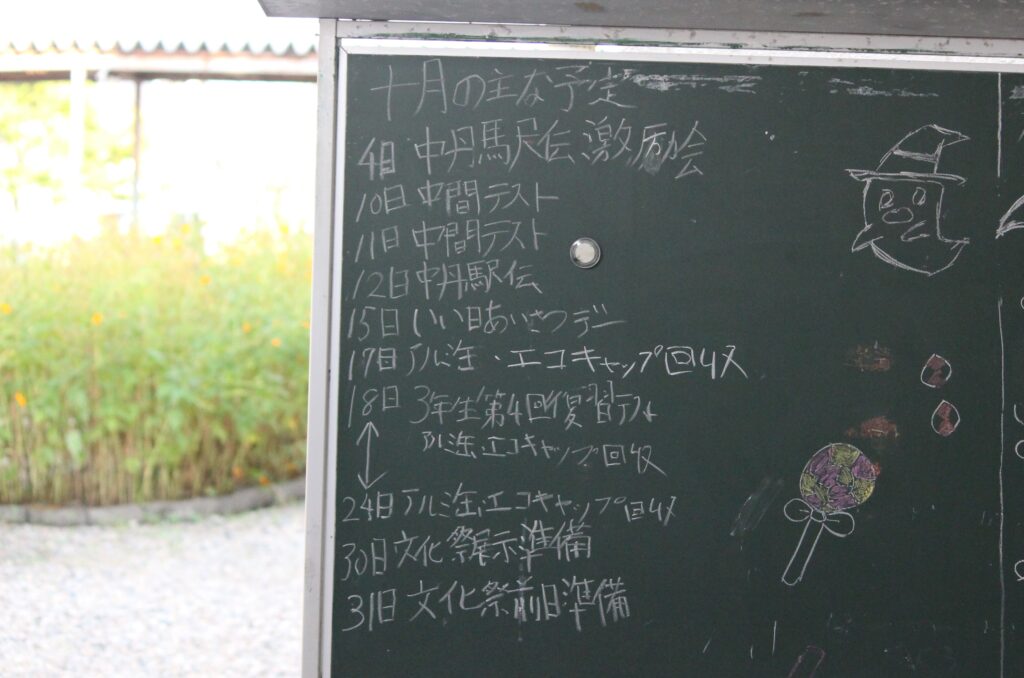 十月の主な予定
4日 中丹駅伝激励会
10日 中間テスト
11日 中間テスト
12日 中丹駅伝
15日 いい日あいさつデー
17日 アルミ缶・エコキャップ回収
18日 3年生第4回復習テスト
アルミ缶エコキャップ回収
24日 アルミ缶エコキャップ回収
30日 文化祭展示準備
31日 文化祭前日準備